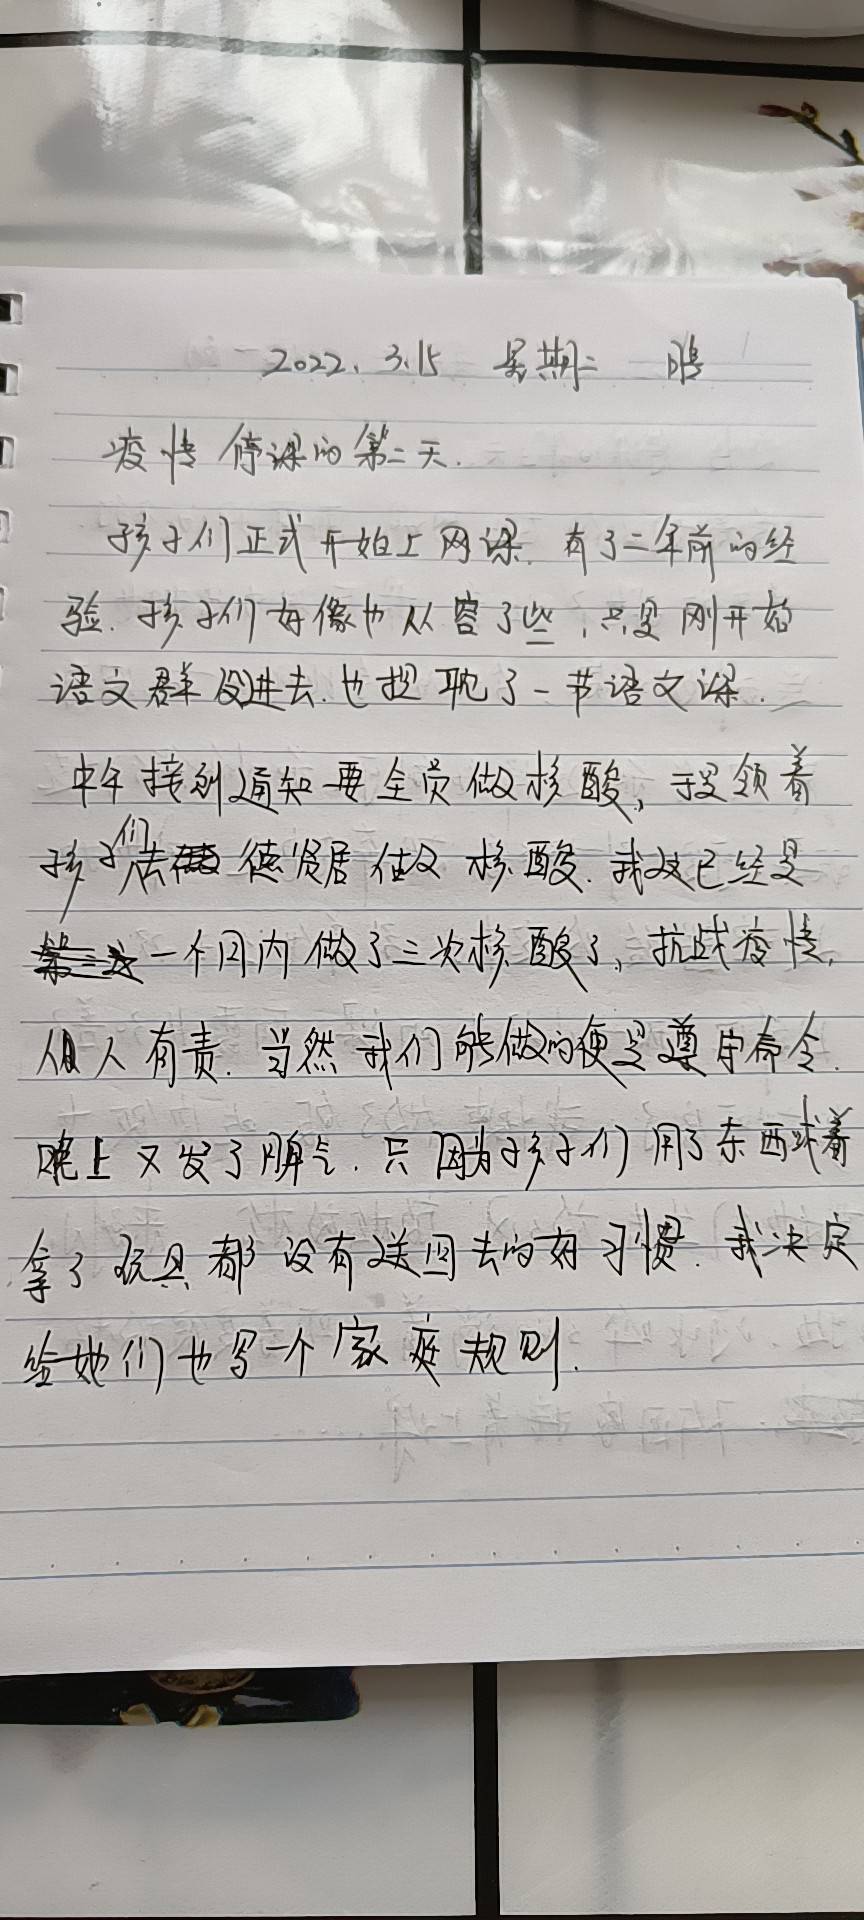 2022.3.15 星期二 晴
疫情停课的第二天.
孩子们正式开始上网课.有了二年前的经
验.孩子们好像也从容了些,只是刚开始
语文群没进去.也担耽了一节语文课.
中午接到通知要全员做核酸,于是领着
孩子们去德贤居做核酸.我这已经是
一个月内做了三次核酸了,抗战疫情,
人人有责.当然我们能做的便是尊守命令.
晚上又发了脾气.只因为孩子们用了东西或着
拿了玩具都没有送回去的好习惯.我决定
给她们也写一个家庭规则.